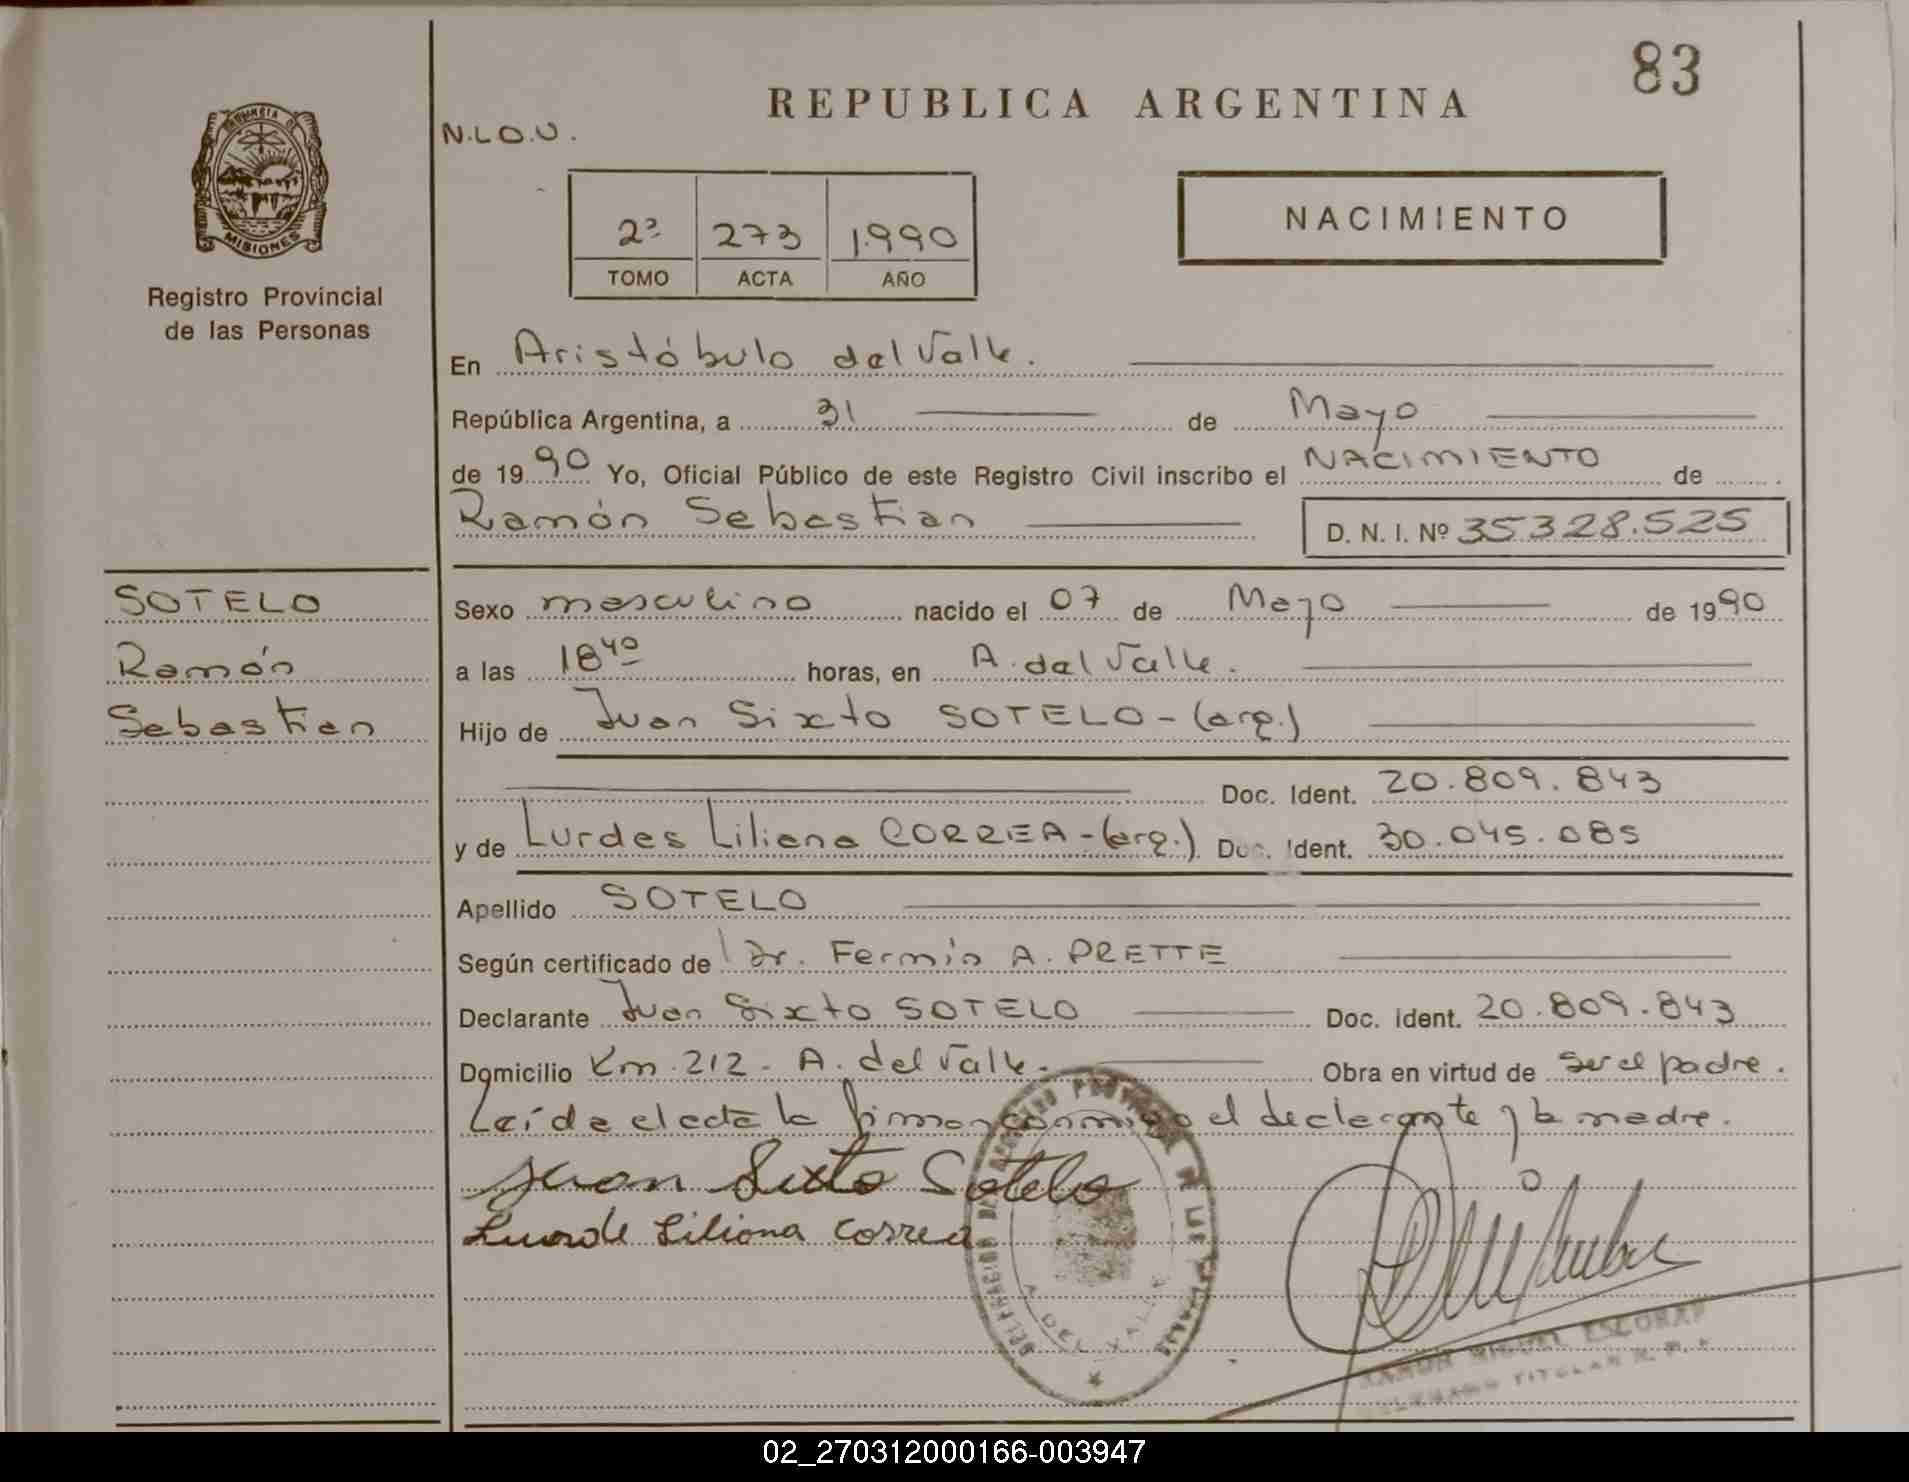 83
REPUBLICA ARGENTINA
N.L.O.U.
PROVINCIA DE
MISIONES
Registro Provincial
de las Personas
2º 273 1.990
TOMO ACTA AÑO
NACIMIENTO
En Aristóbulo del Valle.
República Argentina, a 31 de Mayo
de 1990 Yo, Oficial Público de este Registro Civil inscribo el NACIMIENTO de
Ramón Sebastian
D. N. I. Nº 35.328.525
SOTELO
Ramón
Sebastian
Sexo masculino nacido el 07 de Mayo de 1990
a las 18⁴⁰ horas, en A. del Valle.
Hijo de Juan Sixto SOTELO-(arg.)
Doc. Ident. 20.809.843
y de Lurdes Liliana CORREA-(arg.) Doc. Ident. 30.045.085
Apellido SOTELO
Según certificado de Dr. Fermín A. PRETTE
Declarante Juan Sixto SOTELO Doc. ident. 20.809.843
Domicilio Km. 212 - A. del Valle. Obra en virtud de ser el padre.
Leída el acta la firman conmigo el declarante y la madre.
Juan Sixto Sotelo
Liliana Correa
DELEGACION DEL REGISTRO PROVINCIAL DE LAS PERSONAS
A. DEL VALLE
RAMON MIGUEL ESCOBAR
DELEGADO TITULAR R. P. P.
02_270312000166-003947